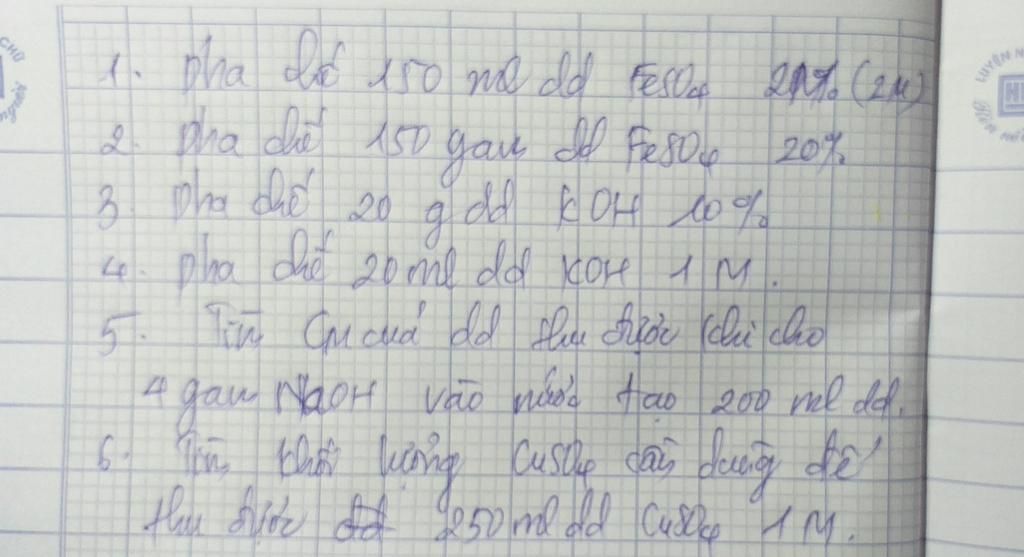 1. Pha chế 150 ml dd FeSO4 2M% (2M)
2. Pha chế 150 gam dd FeSO4 20%
3. Pha chế 20 g dd KOH 10%
4. Pha chế 20 ml dd KOH 1 M.
5. Tín CM cuả dd thu được khi cho
4 gam NaOH vào nước tạo 200 ml dd.
6. Tín khối lượng CuSO4 cần dung để
thu được dd 250 ml dd CuSO4 1 M.
LUYỆN N